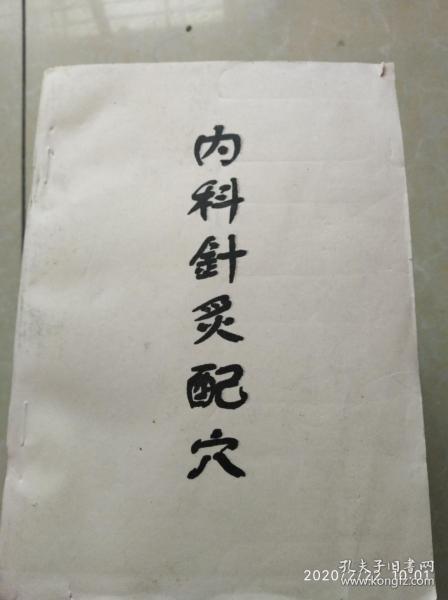 内科針灸配穴
2020/7/22 10:01
孔夫子旧书网
www.kongfz.com